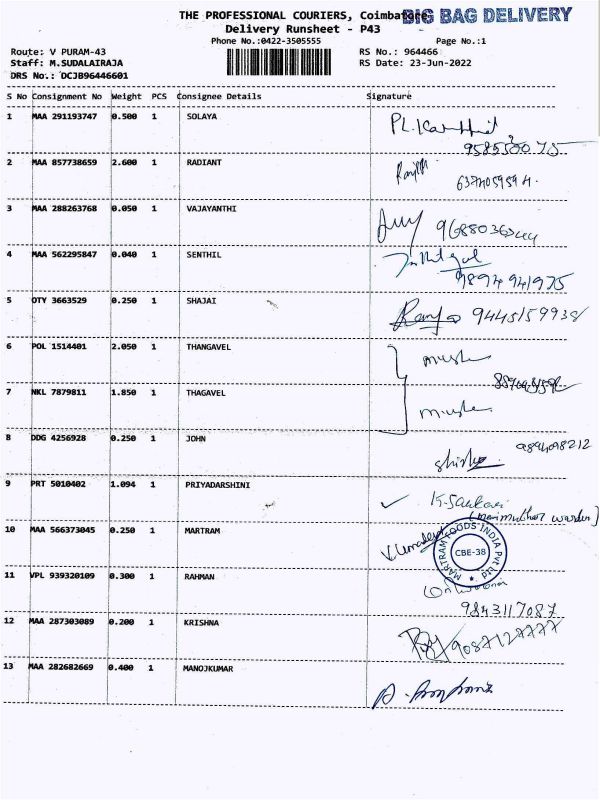 THE PROFESSIONAL COURIERS, Coimbatore
BIG BAG DELIVERY
Delivery Runsheet - P43
Phone No.:0422-3505555 Page No.:1
Route: V PURAM-43 RS No.: 964466
Staff: M.SUDALAIRAJA RS Date: 23-Jun-2022
DRS No.: DCJB96446601
S No Consignment No Weight PCS Consignee Details Signature
1 MAA 291193747 0.500 1 SOLAYA
2 MAA 857738659 2.600 1 RADIANT
3 MAA 288263768 0.050 1 VAJAYANTHI
4 MAA 562295847 0.040 1 SENTHIL
9894941975
5 OTY 3663529 0.250 1 SHAJAI
9445159938
6 POL 1514401 2.050 1 THANGAVEL
7 NKL 7879811 1.850 1 THAGAVEL
8 DDG 4256928 0.250 1 JOHN
9 PRT 5010402 1.094 1 PRIYADARSHINI
10 MAA 566373045 0.250 1 MARTRAM
MARTRAM FOODS INDIA Pvt Ltd
CBE-38
11 VPL 939320109 0.300 1 RAHMAN
9843117087
12 MAA 287303089 0.200 1 KRISHNA
13 MAA 282682669 0.400 1 MANOJKUMAR